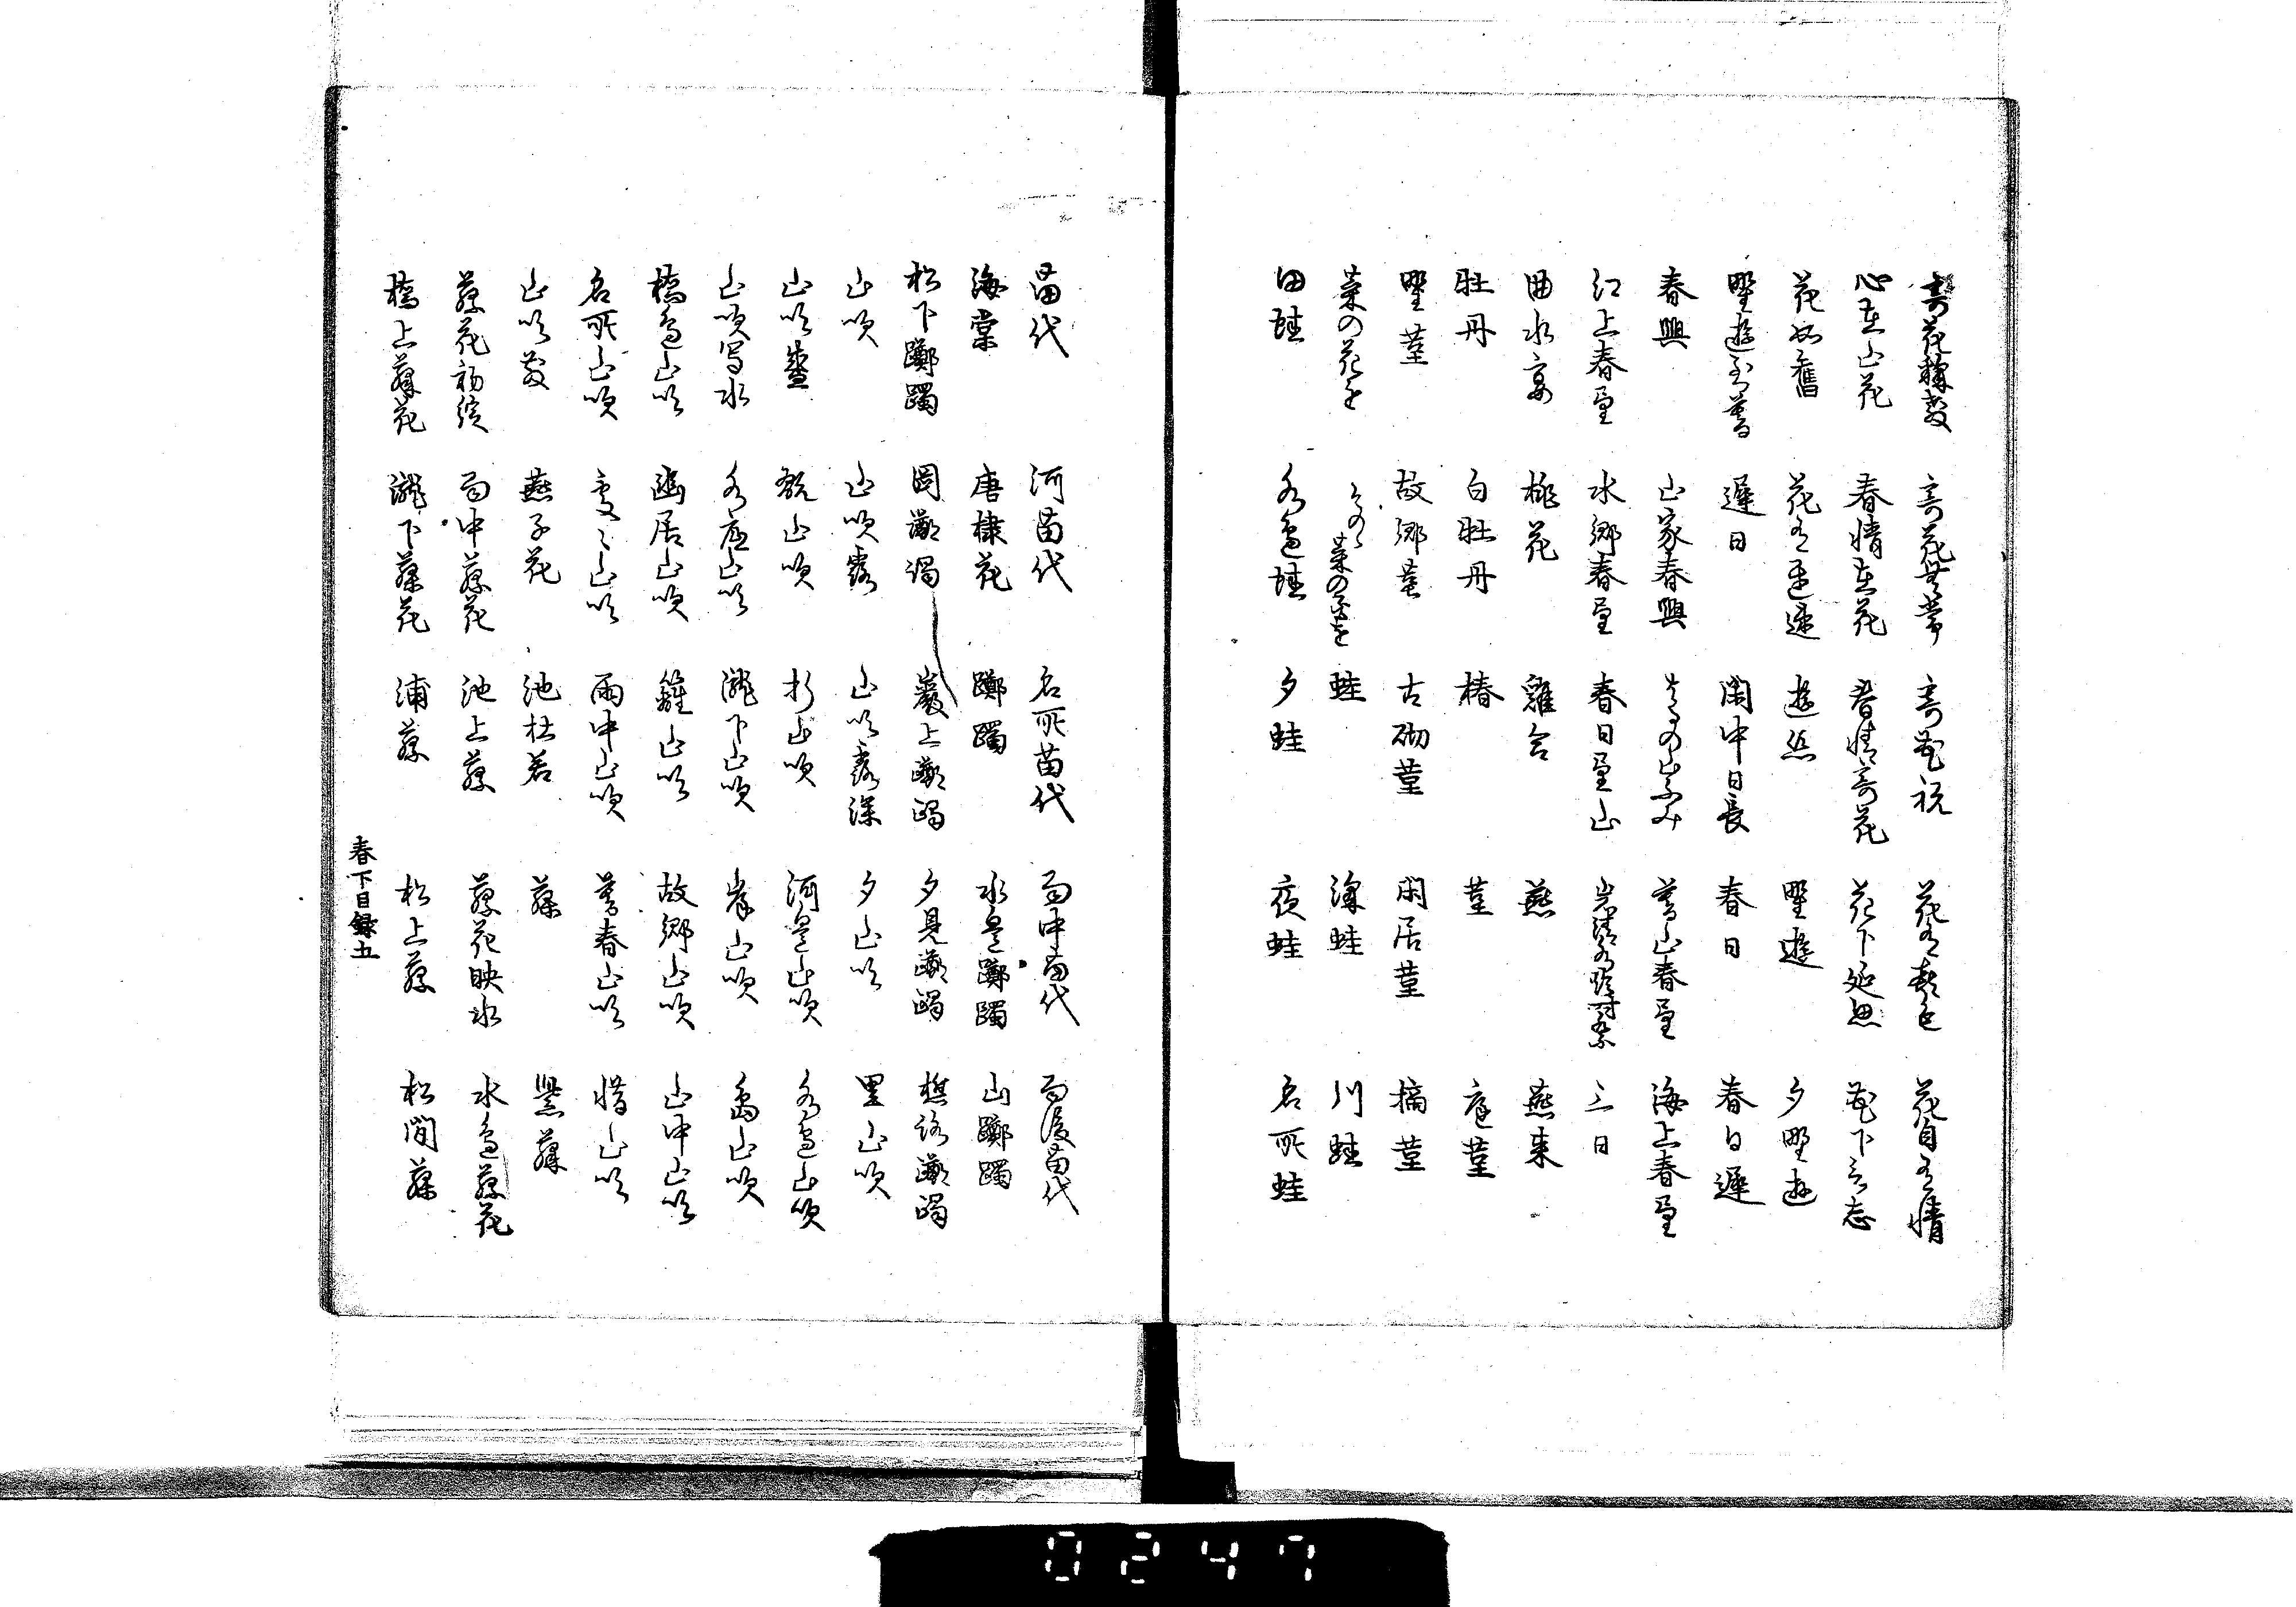 寄花釈教 寄花無常 寄花祝 花有喜色 花自有情
心在山花 春情在花 春情寄花 花下延思 花下言志
花如舊 花有遅速 遊糸 野遊 夕野遊
野遊至暮 遅日 閑中日長 春日 春日遅
春興 山家春興 暮山春望 海上春望
江上春望 水郷春望 春日望山 三日
曲水宴 桃花 雞合 燕 燕来
牡丹 白牡丹 椿 菫 庭菫
野菫 故郷菫 古砌菫 閑居菫 摘菫
菜の花を 菜の花を 蛙 深蛙 川蛙
田蛙 水邊蛙 夕蛙 夜蛙 名所蛙
苗代 河苗代 名所苗代 雨中苗代 雨後苗代
海棠 唐棣花 躑躅 水邊躑躅 山躑躅
松下躑躅 岡躑躅 巖上躑躅 夕見躑躅 樵路躑躅
山吹 山吹露 山吹露深 夕山吹 里山吹
山吹盛 翫山吹 折山吹 河邊山吹 水邊山吹
山吹写水 水底山吹 瀧下山吹 岸山吹 島山吹
橋邊山吹 幽居山吹 籬山吹 故郷山吹 山中山吹
名所山吹 處々山吹 雨中山吹 暮春山吹 惜山吹
山吹散 燕子花 池杜若 藤 紫藤
藤花初綻 雨中藤花 池上藤 藤花映水 水邊藤花
橋上藤花 瀧下藤花 浦藤 松上藤 松間藤
春下目録五
0247